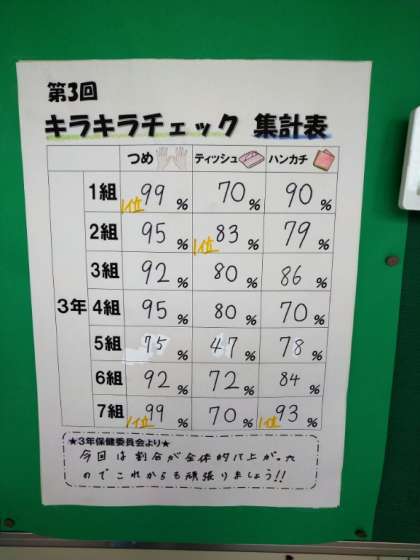 第3回
キラキラチェック 集計表
つめ ティッシュ ハンカチ
3年
1組 1位 99% 70% 90%
2組 95% 1位 83% 79%
3組 92% 80% 86%
4組 95% 80% 70%
5組 75% 47% 78%
6組 92% 72% 84%
7組 1位 99% 70% 1位 93%
★3年保健委員会より★
今回は割合が全体的に上がった
のでこれからも頑張りましょう!!